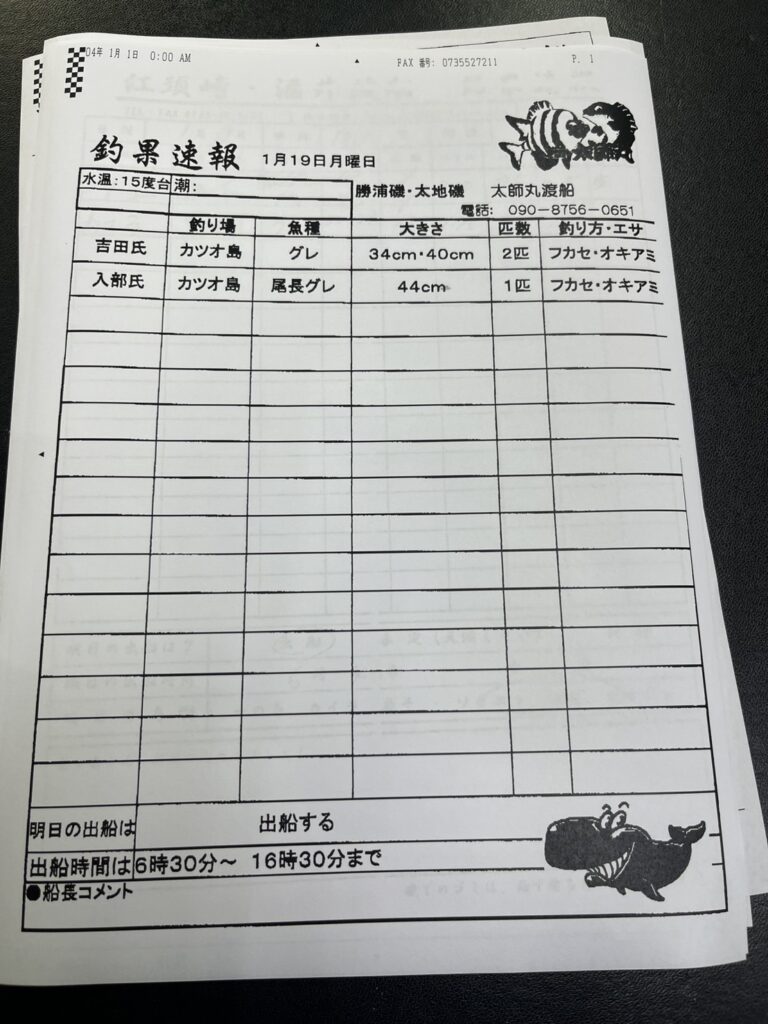 04年 1月 1日 0:00 AM FAX 番号: 0735527211 P. 1
釣果速報 1月19日月曜日
太師丸
水温:15度台 潮: 勝浦磯・太地磯 太師丸渡船
電話: 090-8756-0651
釣り場 魚種 大きさ 匹数 釣り方・エサ
吉田氏 カツオ島 グレ 34cm・40cm 2匹 フカセ・オキアミ
入部氏 カツオ島 尾長グレ 44cm 1匹 フカセ・オキアミ
明日の出船は 出船する
出船時間は 6時30分～ 16時30分まで
●船長コメント